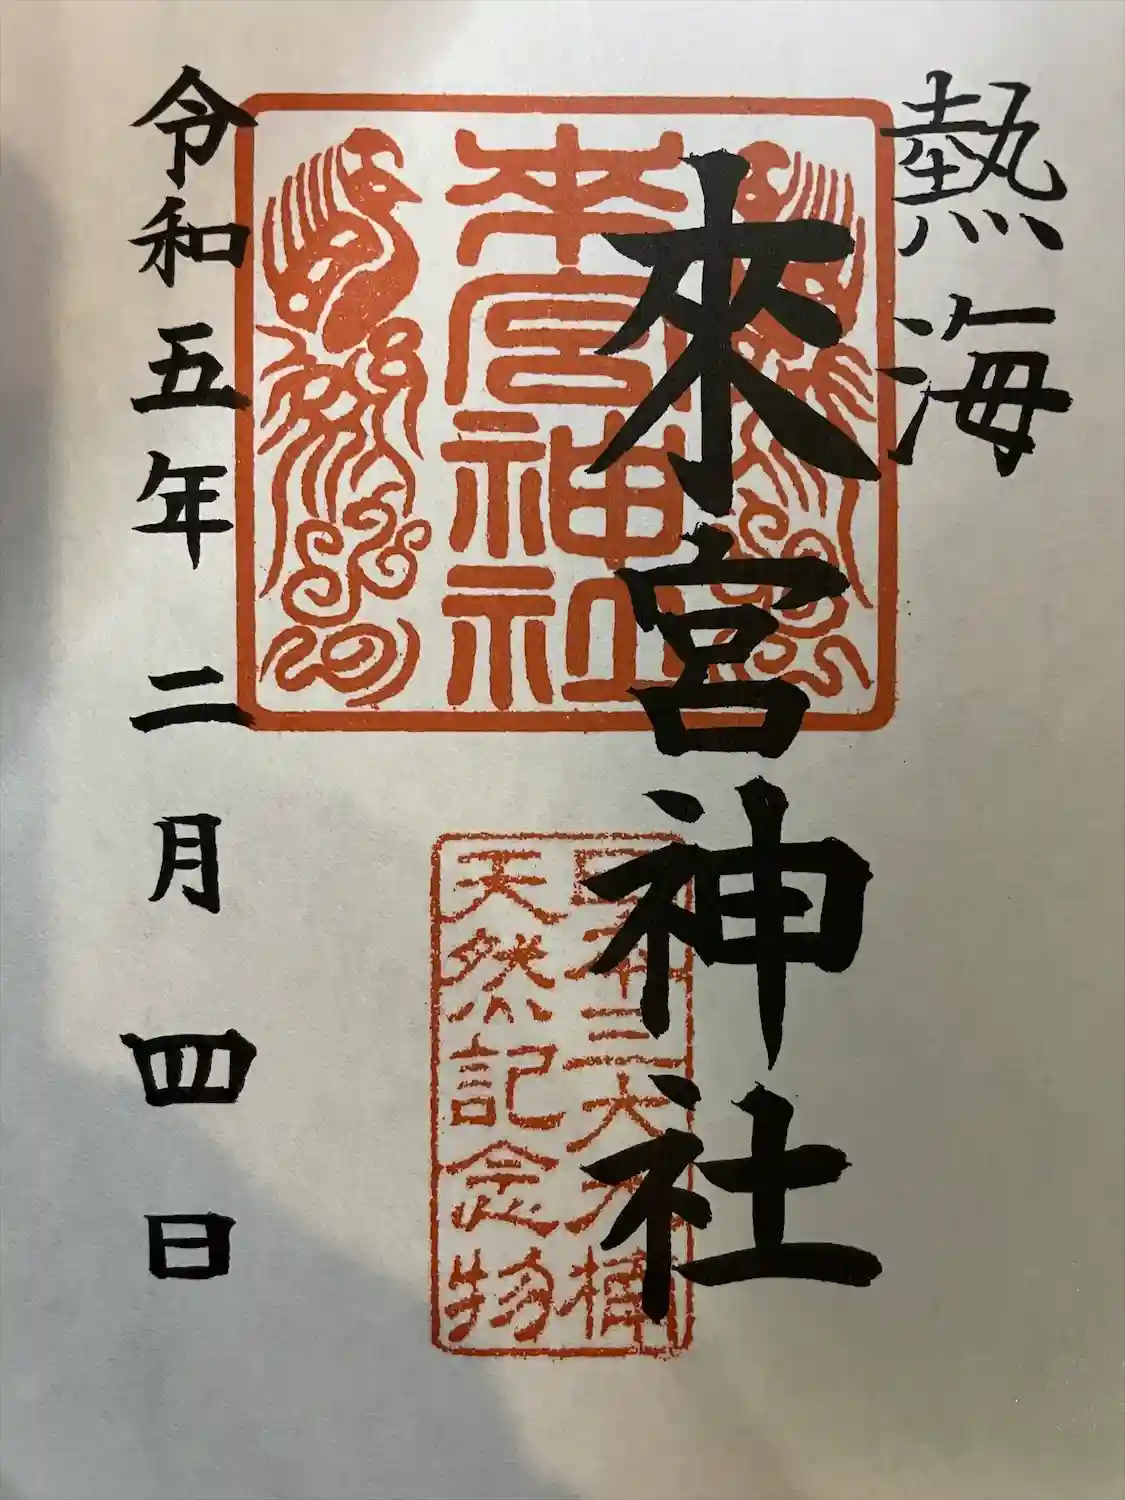 熱海
來宮神社
來宮神社
日本三大大楠
天然記念物
令和五年二月四日